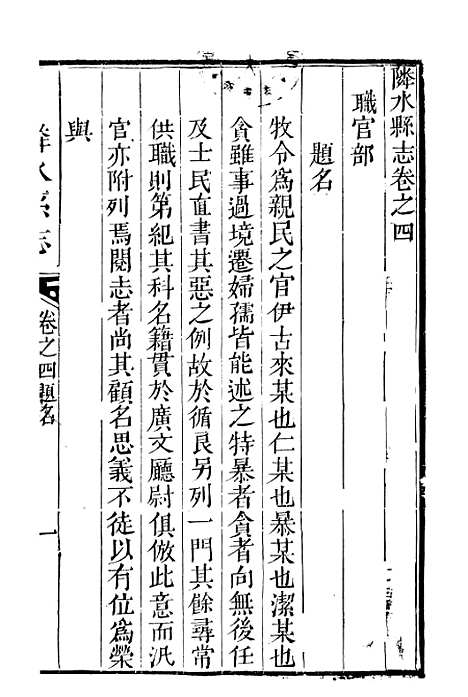 隣水縣志卷之四
職官部
題名
牧令爲親民之官伊古來某也仁某也暴某也潔某也
貪雖事過境遷婦孺皆能述之特暴者貪者向無後任
及士民直書其惡之例故於循良另列一門其餘尋常
供職則第紀其科名籍貫於廣文廳尉俱倣此意而汛
官亦附列焉閱志者尚其顧名思義不徒以有位爲榮
與
隣水縣志
卷之四題名
一